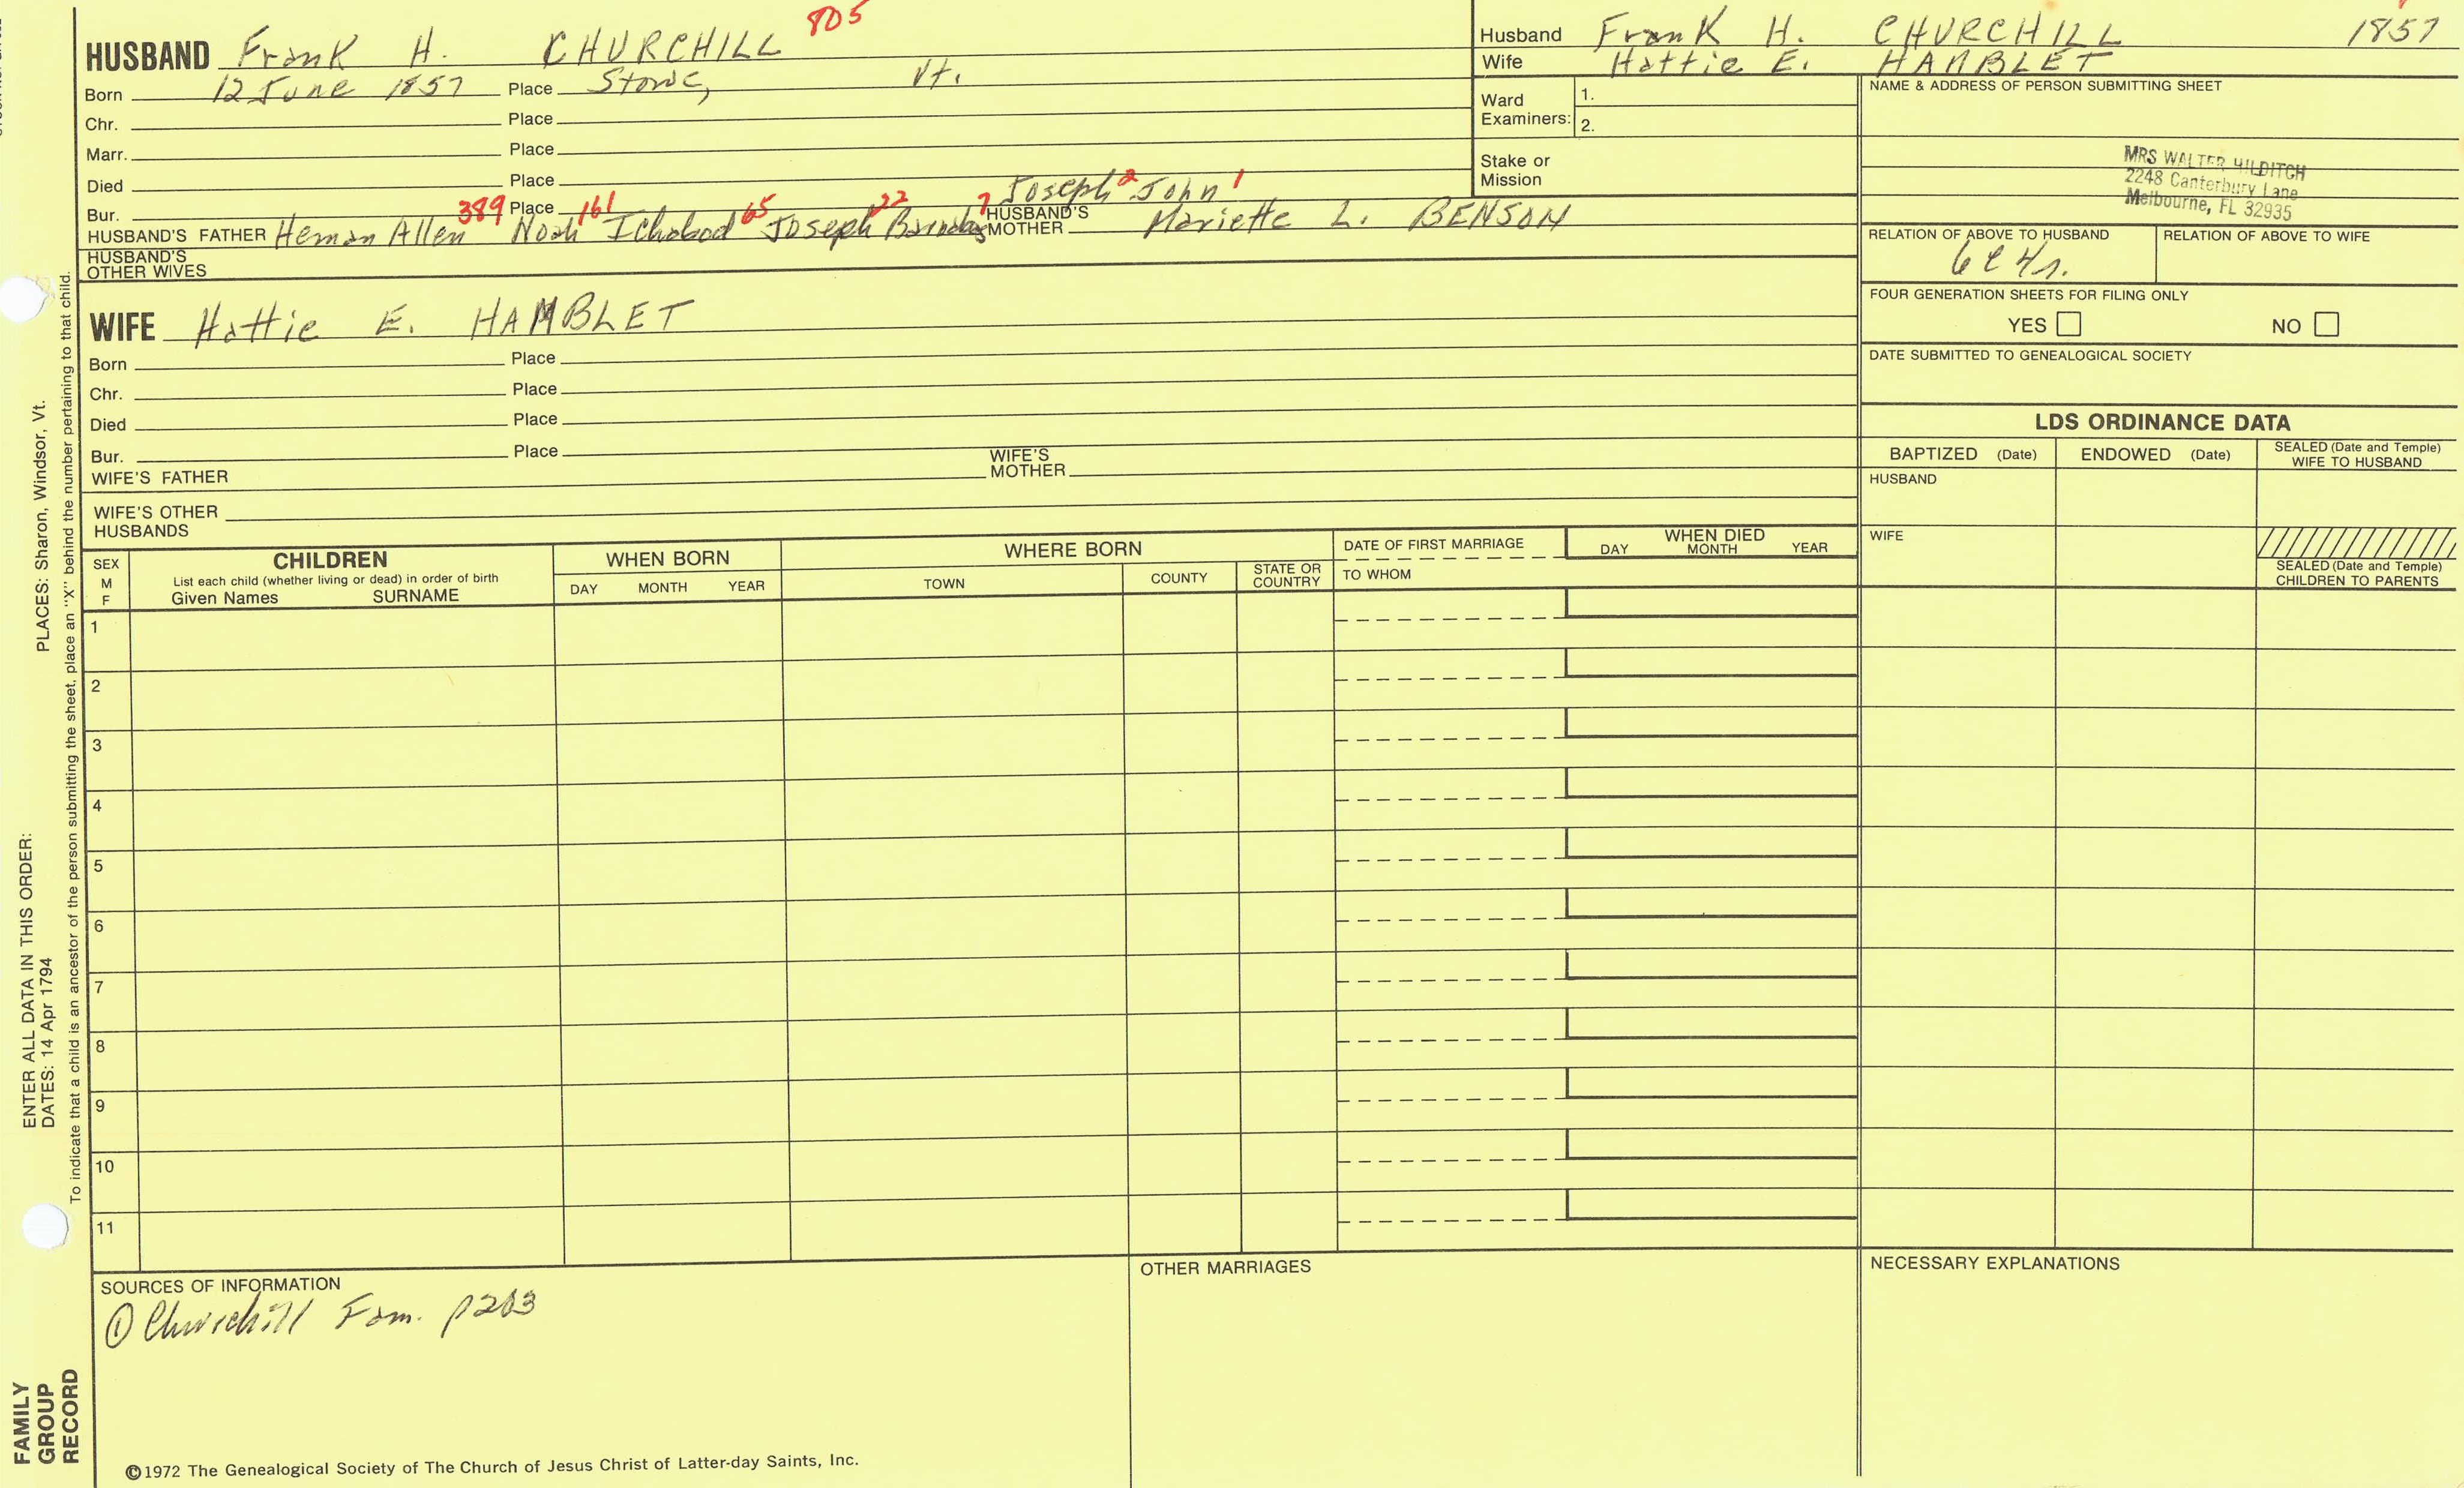 HUSBAND Frank H. CHURCHILL 805
Born 12 June 1857 Place Stowe, Vt.
Chr. Place
Marr. Place
Died Place
Joseph 2 John 1
Bur. Place
HUSBAND'S FATHER Heman Allen 389 Noah 161 Ichabod 65 Joseph 22 Barnabas 7 HUSBAND'S MOTHER Mariette L. BENSON
HUSBAND'S OTHER WIVES
Husband Frank H. CHURCHILL 1857
Wife Hattie E. HAMBLET
Ward Examiners: 1.
2.
Stake or Mission
NAME & ADDRESS OF PERSON SUBMITTING SHEET
MRS WALTER HILDITCH
2248 Canterbury Lane
Melbourne, FL 32935
RELATION OF ABOVE TO HUSBAND RELATION OF ABOVE TO WIFE
FOUR GENERATION SHEETS FOR FILING ONLY
YES NO
DATE SUBMITTED TO GENEALOGICAL SOCIETY
WIFE Hattie E. HAMBLET
Born Place
Chr. Place
Died Place
Bur. Place
WIFE'S FATHER WIFE'S MOTHER
WIFE'S OTHER HUSBANDS
LDS ORDINANCE DATA
BAPTIZED (Date) ENDOWED (Date) SEALED (Date and Temple) WIFE TO HUSBAND
HUSBAND
WIFE
SEALED (Date and Temple) CHILDREN TO PARENTS
SEX M F
CHILDREN
List each child (whether living or dead) in order of birth
Given Names SURNAME
WHEN BORN
DAY MONTH YEAR
WHERE BORN
TOWN COUNTY STATE OR COUNTRY
DATE OF FIRST MARRIAGE
TO WHOM
WHEN DIED
DAY MONTH YEAR
1
2
3
4
5
6
7
8
9
10
11
SOURCES OF INFORMATION
① Churchill Fam. p203
OTHER MARRIAGES
NECESSARY EXPLANATIONS
©1972 The Genealogical Society of The Church of Jesus Christ of Latter-day Saints, Inc.
FAMILY GROUP RECORD
ENTER ALL DATA IN THIS ORDER:
DATES: 14 Apr 1794
PLACES: Sharon, Windsor, Vt.
To indicate that a child is an ancestor of the person submitting the sheet, place an "X" behind the number pertaining to that child.